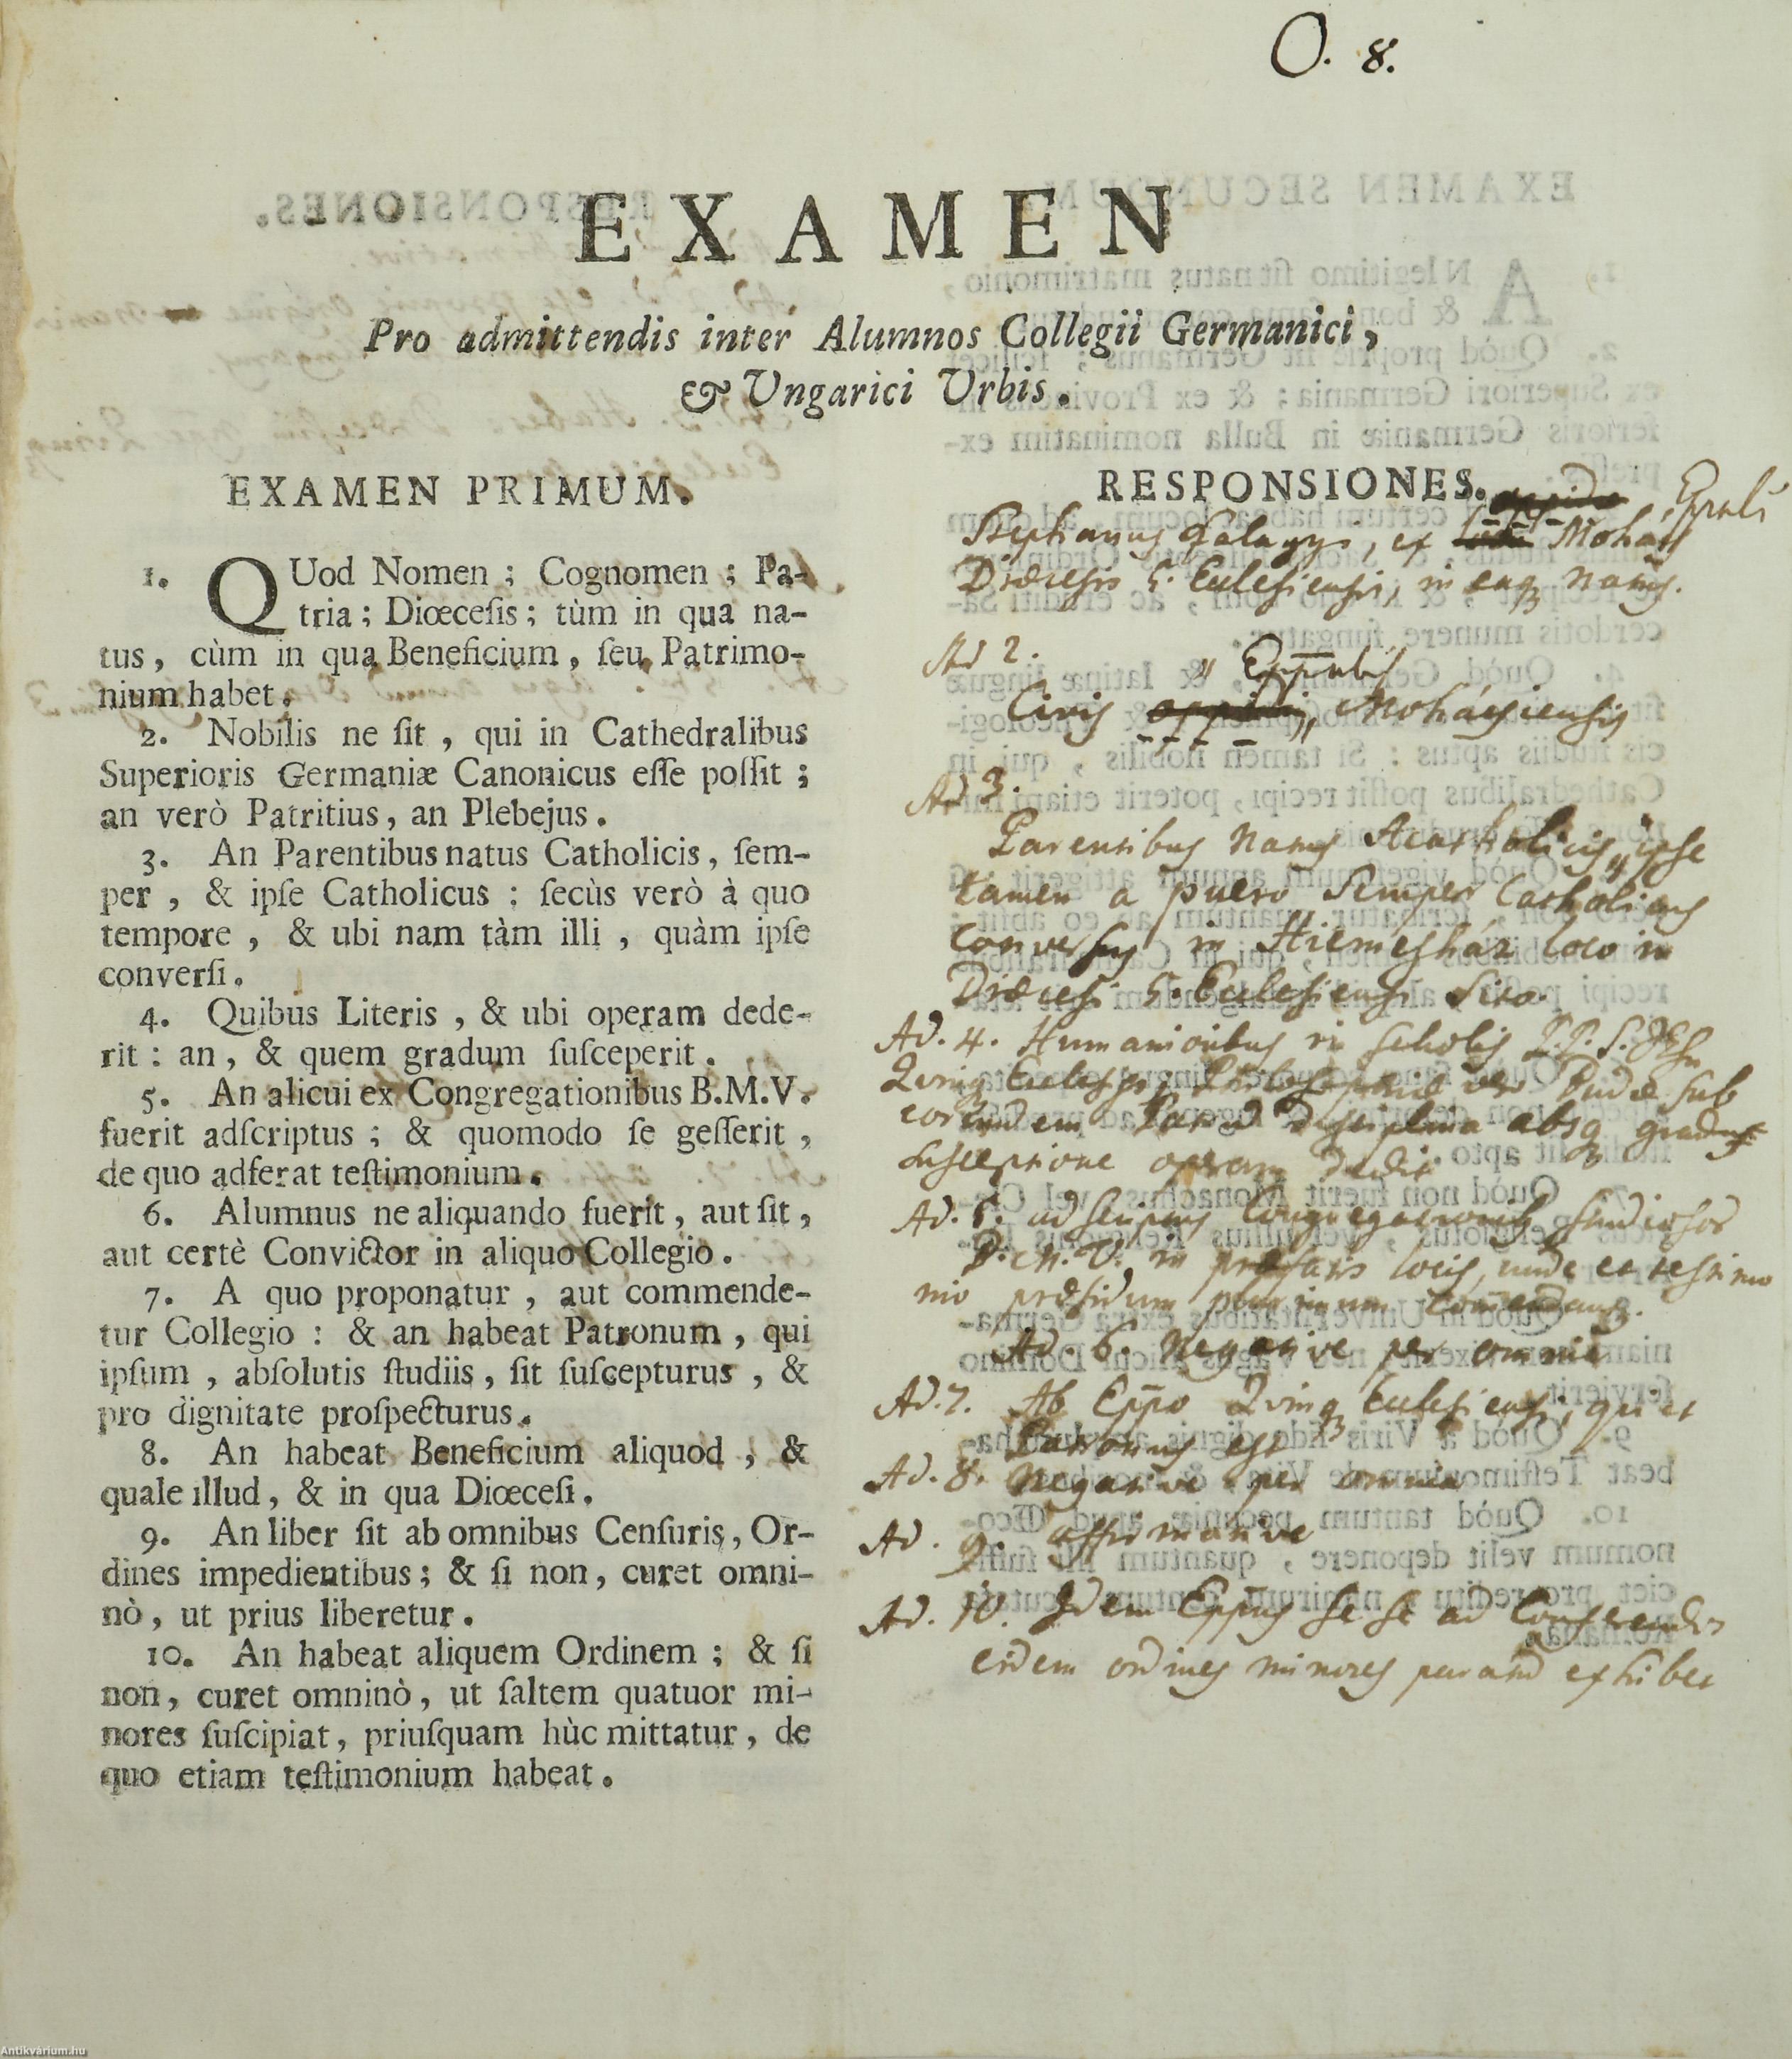 O. 8.
EXAMEN
Pro admittendis inter Alumnos Collegii Germanici,
& Ungarici Urbis.
EXAMEN PRIMUM.
1. QUod Nomen ; Cognomen ; Pa-
tria ; Diœceſis ; tùm in qua na-
tus , cùm in qua Beneficium , ſeu Patrimo-
nium habet.
2. Nobilis ne ſit , qui in Cathedralibus
Superioris Germaniæ Canonicus eſſe poſſit ;
an verò Patritius, an Plebejus.
3. An Parentibus natus Catholicis, ſem-
per , & ipſe Catholicus : ſecùs verò à quo
tempore , & ubi nam tàm illi , quàm ipſe
converſi.
4. Quibus Literis , & ubi operam dede-
rit : an, & quem gradum ſuſceperit.
5. An alicui ex Congregationibus B.M.V.
fuerit adſcriptus ; & quomodo ſe geſſerit ,
de quo adferat teſtimonium.
6. Alumnus ne aliquando fuerit, aut ſit,
aut certè Convictor in aliquo Collegio.
7. A quo proponatur , aut commende-
tur Collegio : & an habeat Patronum , qui
ipſum , abſolutis ſtudiis, ſit ſuſcepturus , &
pro dignitate proſpecturus.
8. An habeat Beneficium aliquod , &
quale illud, & in qua Diœceſi.
9. An liber ſit ab omnibus Cenſuris, Or-
dines impedientibus ; & ſi non, curet omni-
nò, ut prius liberetur.
10. An habeat aliquem Ordinem ; & ſi
non, curet omninò, ut ſaltem quatuor mi-
nores ſuſcipiat, priuſquam hùc mittatur, de
quo etiam teſtimonium habeat.
RESPONSIONES.
Stephanus, ex Mohács
Diœcesis 5. Ecclesiensis, in eaq natus.
Ad 2.
Civis Mohácsiensis
Ad 3.
Parentibus natus Acatholicis, ipse
tamen a puero Semper Catholicus
conversus in loco in
Diœcesi 5. Ecclesiensi Sito.
Ad. 4. Humanioribus in Scholis P.P. S. JEsu
Quinq Ecclesiis, Philosophiæ vero Budæ sub
eorundem Patrum disciplina absq gradus
susceptione operam dedit
Ad. 5. adscriptus Congregationib
B. M. V. in præfatis locis, unde et testimo
nio præsidum
Ad. 6. Negative per omnia
Ad. 7. Ab Eppo Quinq Ecclesiensi, qui et
Patronus est
Ad. 8. Negative per omnia
Ad. 9. affirmative
Ad. 10. Idem Eppus se se ad Conferendos
eidem ordines minores paratum exhibet
Antikvárium.hu